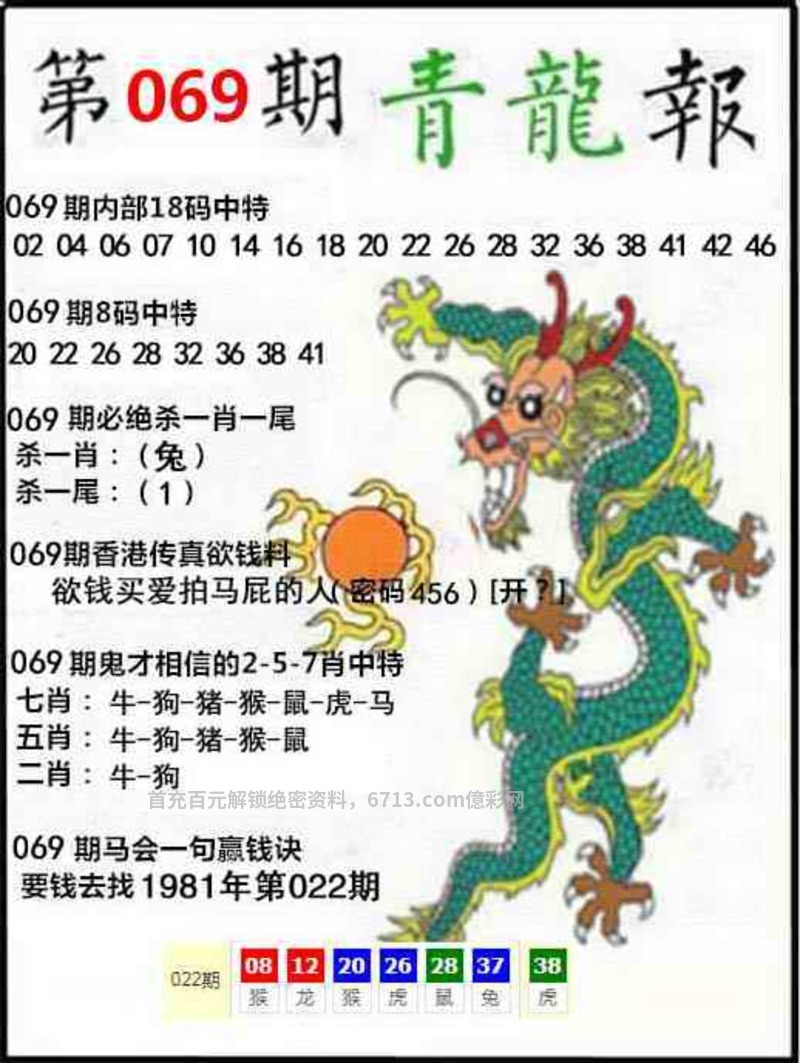 第069期青龍報
069期内部18码中特
02 04 06 07 10 14 16 18 20 22 26 28 32 36 38 41 42 46
069期8码中特
20 22 26 28 32 36 38 41
069 期必绝杀一肖一尾
杀一肖：（兔）
杀一尾：（1）
069期香港传真欲钱料
欲钱买爱拍马屁的人(密码456)[开?]
069期鬼才相信的2-5-7肖中特
七肖：牛-狗-猪-猴-鼠-虎-马
五肖：牛-狗-猪-猴-鼠
二肖：牛-狗
首充百元解锁绝密资料，6713.com億彩网
069 期马会一句赢钱诀
要钱去找1981年第022期
022期 08 12 20 26 28 37 38
猴 龙 猴 虎 鼠 兔 虎